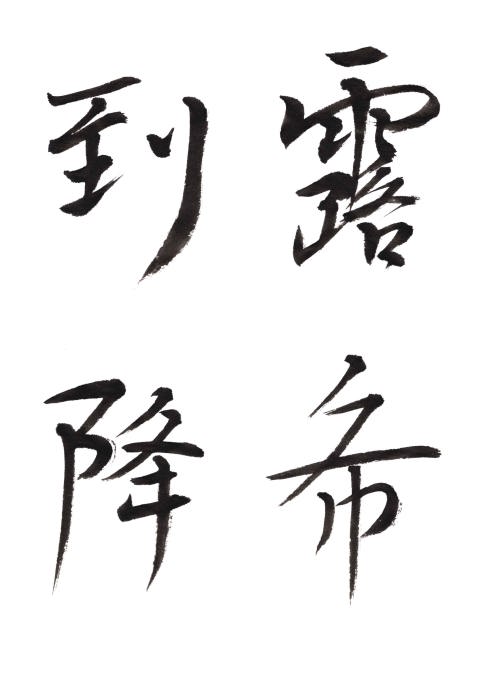 露希
到降